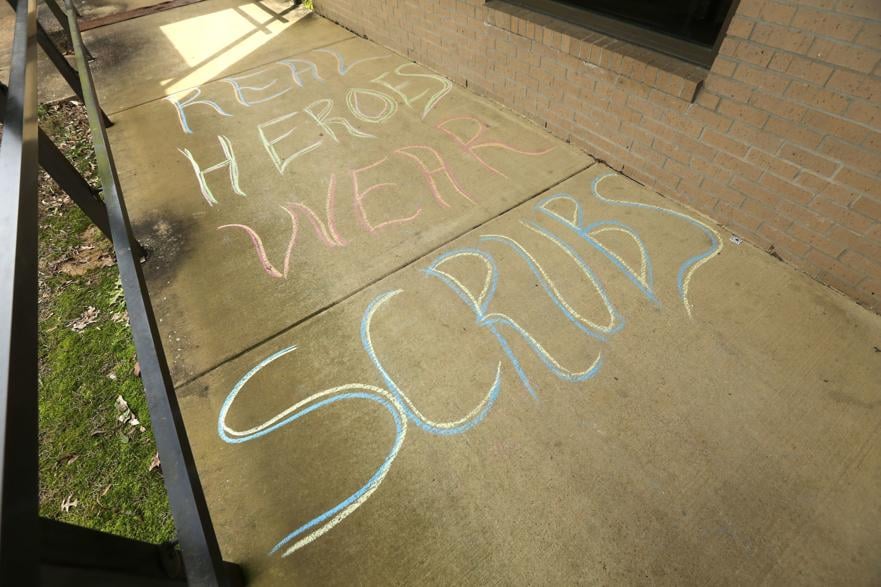 REAL
HEROES
WEAR
SCRUBS